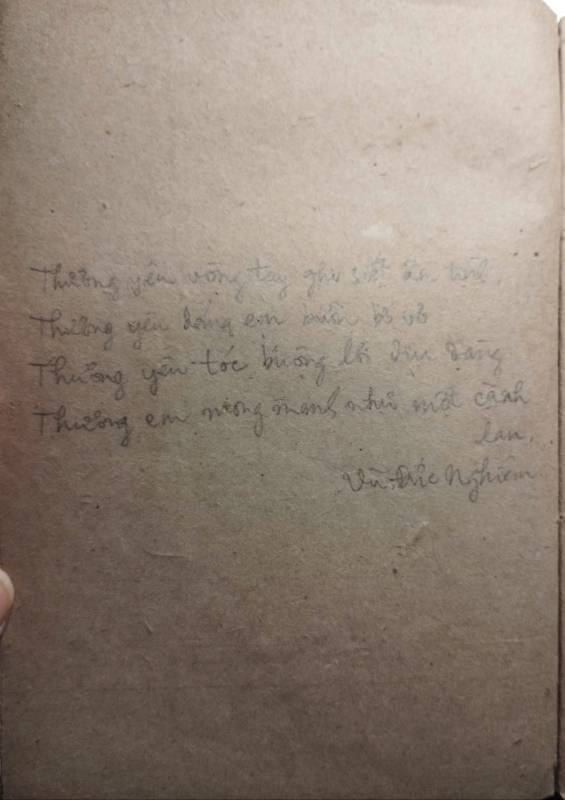 Thương yêu vòng tay ghì siết ân tình,
Thương yêu dáng em buồn bơ vơ
Thương yêu tóc buông lời dịu dàng
Thương em mong manh như một cành
lan.
Vũ Đức Nghiêm